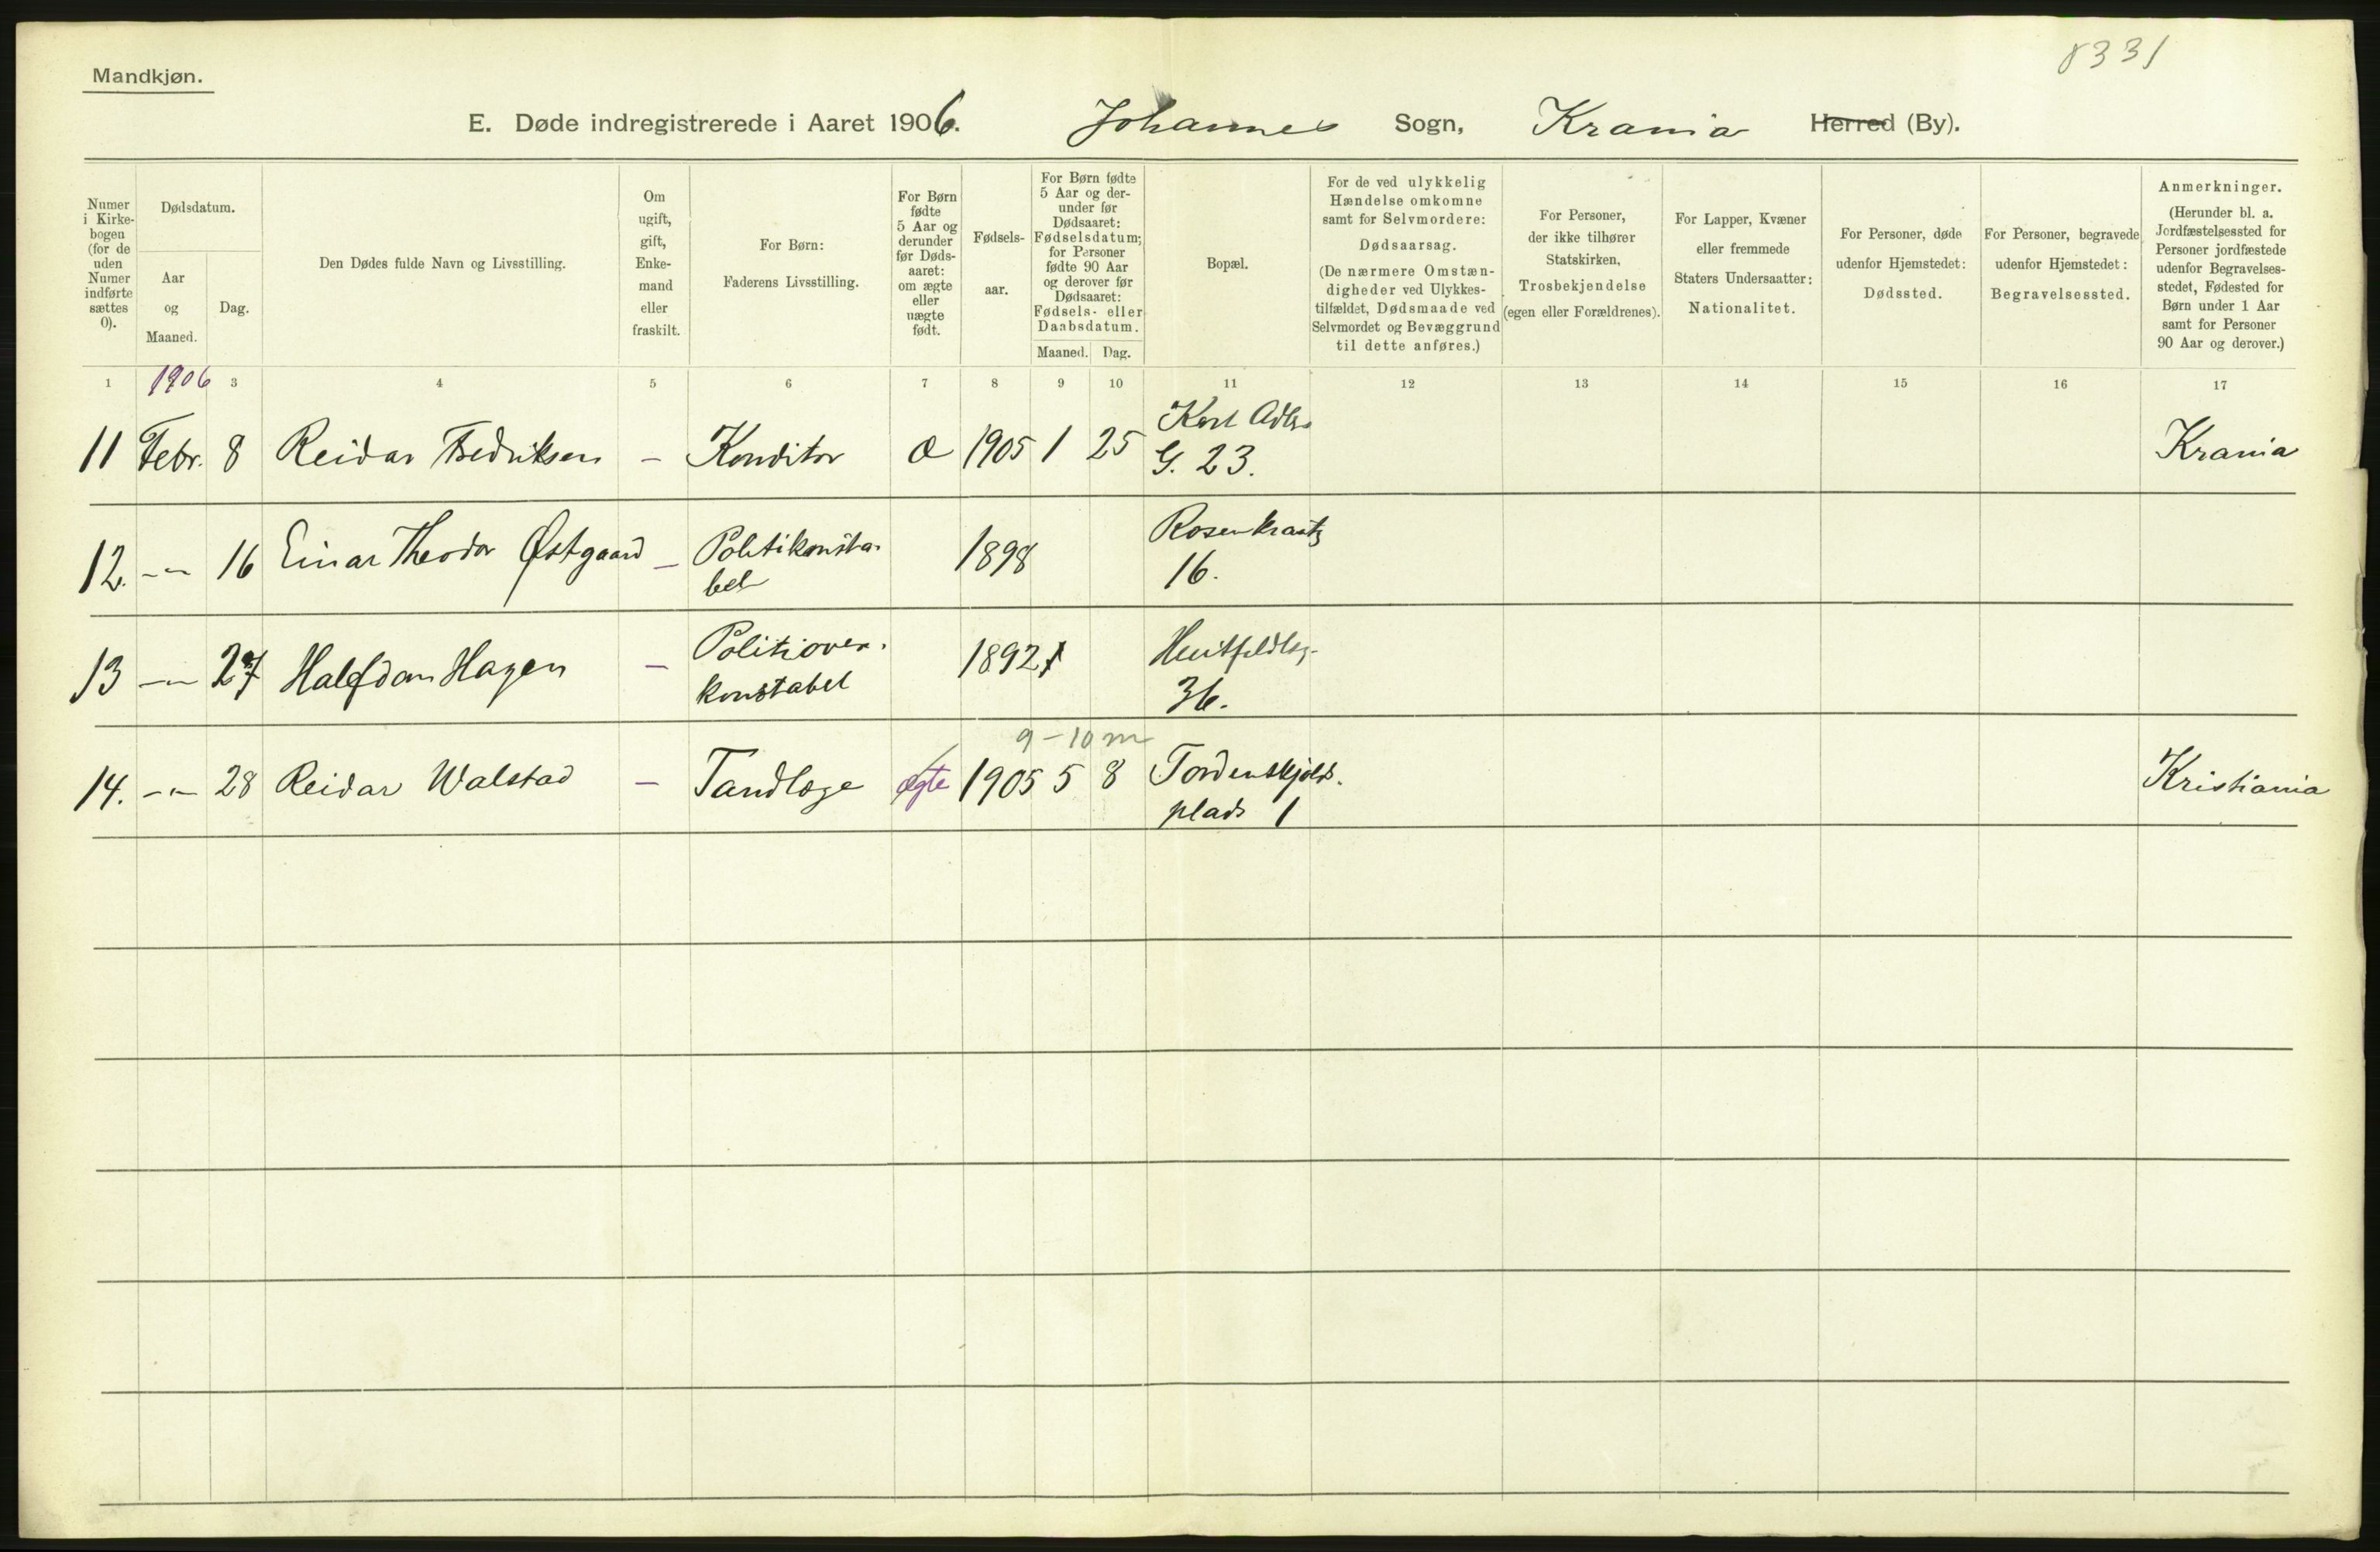 8331
Mandkjøn.
E. Døde indregistrerede i Aaret 1906. Johannes Sogn, Krania Herred (By).
Numer i Kirkebogen (for de uden Numer indførte sættes 0).
Dødsdatum.
Aar og Maaned.
Dag.
Den Dødes fulde Navn og Livsstilling.
Om ugift, gift, Enkemand eller fraskilt.
For Børn: Faderens Livsstilling.
For Børn fødte 5 Aar og derunder før Dødsaaret: om ægte eller uægte født.
Fødselsaar.
For Børn fødte 5 Aar og derunder før Dødsaaret: Fødselsdatum; for Personer fødte 90 Aar og derover før Dødsaaret: Fødsels- eller Daabsdatum.
Maaned. Dag.
Bopæl.
For de ved ulykkelig Hændelse omkomne samt for Selvmordere: Dødsaarsag. (De nærmere Omstændigheder ved Ulykkestilfældet, Dødsmaade ved Selvmordet og Bevæggrund til dette anføres.)
For Personer, der ikke tilhører Statskirken, Trosbekjendelse (egen eller Forældrenes).
For Lapper, Kvæner eller fremmede Staters Undersaatter: Nationalitet.
For Personer, døde udenfor Hjemstedet: Dødssted.
For Personer, begravede udenfor Hjemstedet: Begravelsessted.
Anmerkninger. (Herunder bl. a. Jordfæstelsessted for Personer jordfæstede udenfor Begravelsesstedet, Fødested for Børn under 1 Aar samt for Personer 90 Aar og derover.)
1 1906 3 4 5 6 7 8 9 10 11 12 13 14 15 16 17
11 Febr. 8 Reidar Fredriksen — Konditor Æ 1905 1 25 Kort Adlers G. 23. Krania
12. -„- 16 Einar Theodor Østgaard — Politikonstabel 1898 Rosenkrantz 16.
13 -„- 27 Halfdan Hagen — Politioverkonstabel 1892 Huitfeldtsg. 36.
9-10 m
14. -„- 28 Reidar Walstad — Tandlæge ægte 1905 5 8 Tordenskjolds plads 1 Kristiania